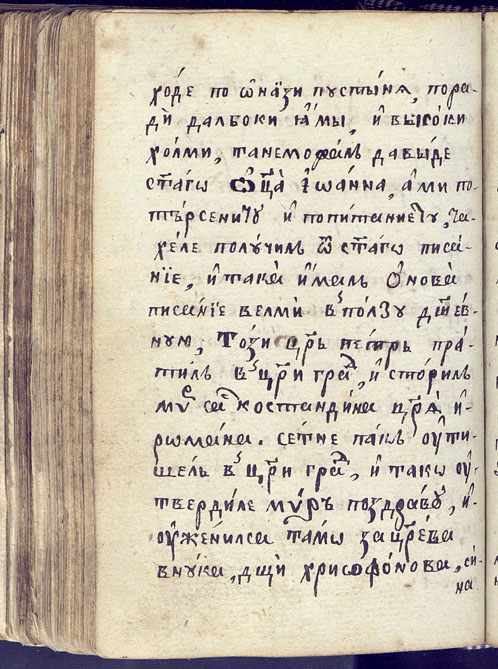 ходе́ по ѡ҆на́ѕи пусты́нѧ, пора-
ди́ далбоки ꙗ҆́мы, и҆ высо́ки
хо́лми, та немога́лъ да вы́де
ст҃агѡ ѿц҃а̀ і҆ѡа́нна, а҆ ми по-
тъ́рсени ту̀ и҆ попи́танїе ту̀, ча-
хе́ле получи́лъ ѿ ст҃агѡ писа́-
нїе, и҆ така̀ и҆́малъ ѻ҆нова̀
писа́нїе велмѝ в ползу дш҃ев-
ную; То́зи цр҃ь пе́тръ пра́-
тилъ в цр҃и гра́д, и҆ сто́рилъ
мир са костанди́на цр҃ѧ̀ и҆-
рома́на. се́тне па́къ ѹ҆ти-
ше́лъ в цр҃и гра́д, и҆ такѡ ѹ҆-
твердиле ми́ръ по здра́вѹ, и҆-
ѹ҆жени́лса та́мѡ за цр҃е́ва
вну́ка, дщѝ христофо́рова, си́-
на